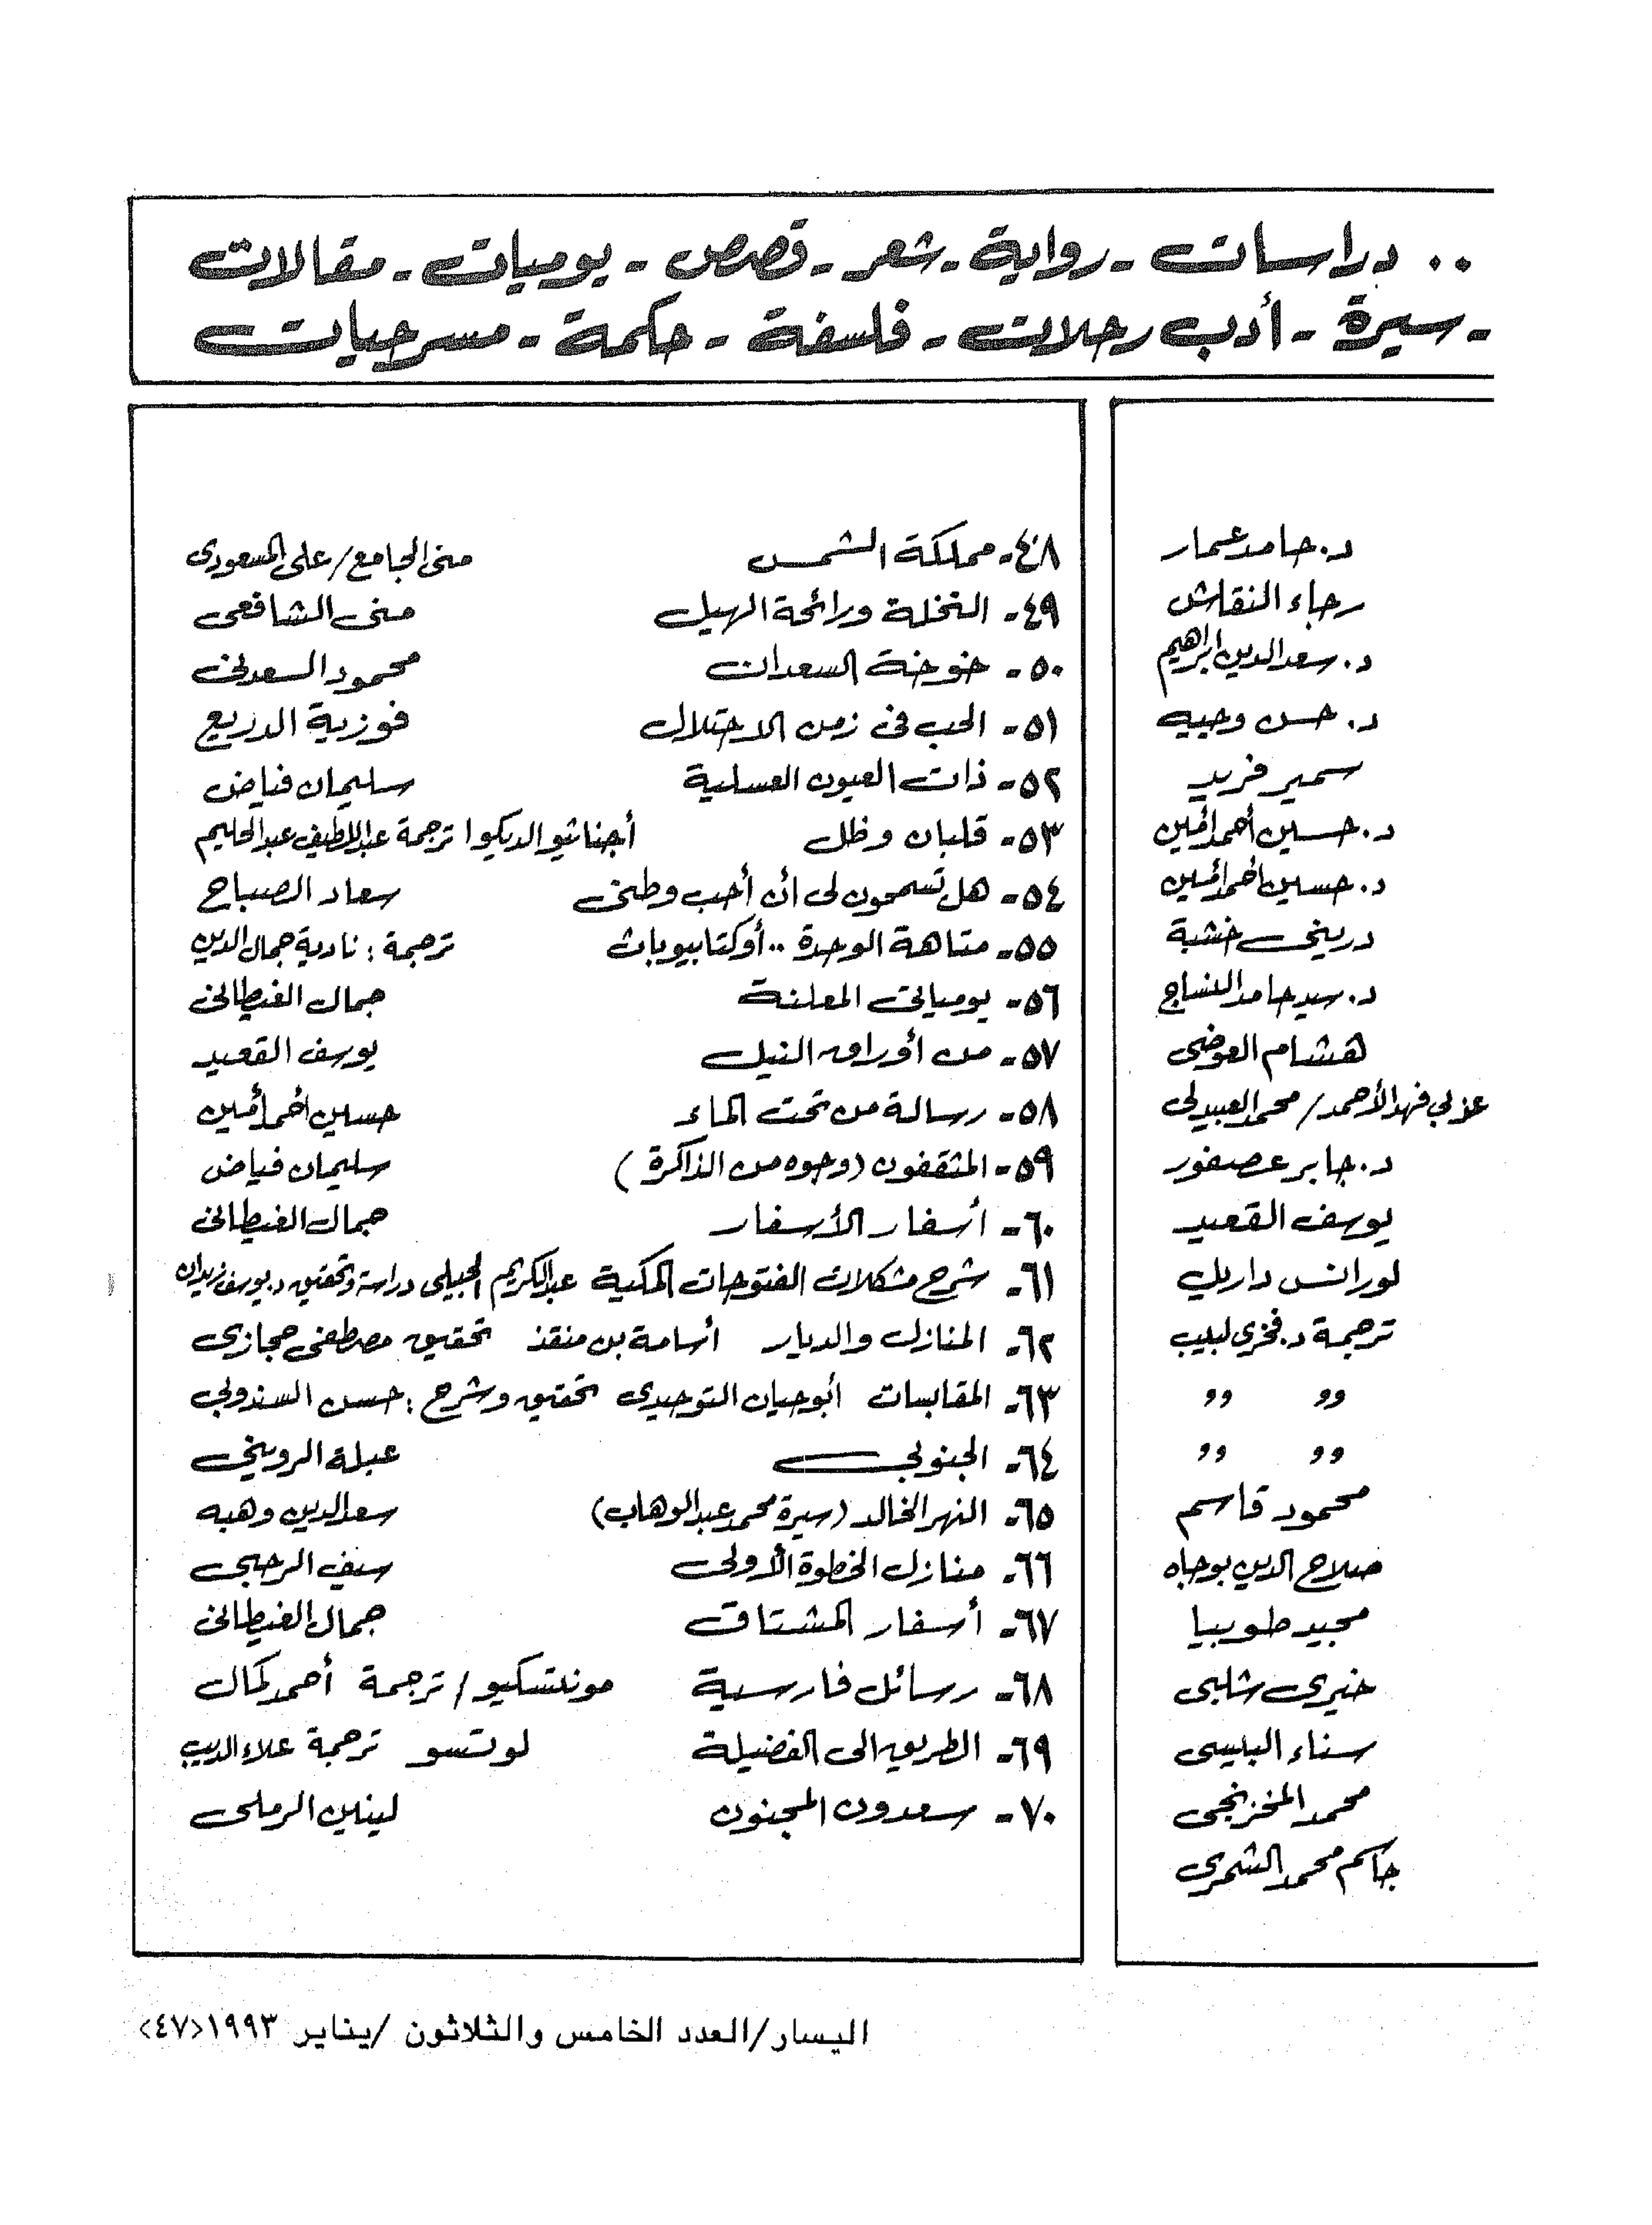 .. دراسات - رواية - شعر - قصص - يوميات - مقالات
- سيرة - أدب رحلات - فلسفة - حكمة - مسرحيات
د. حامد عمار
رجاء النقاش
د. سعد الدين ابراهيم
د. حسن وجيه
سمير فريد
د. حسين أحمد أمين
د. حسين أحمد أمين
دريني خشبة
د. سيد حامد النساج
هشام العوضى
عزبي فهد الأحمد / محمد العبيدلى
د. جابر عصفور
يوسف القعيد
لورانس داريل
ترجمة د. فخري لبيب
,, ,,
,, ,,
محمود قاسم
صلاح الدين بوجاه
مجيد طوبيا
خيرى شلبى
سناء البيسى
محمد المخزنجى
جاسم محمد الشمرى
٤٨- مملكة الشمس منى الجامع / على المسعودى
٤٩- النخلة ورائحة الهيل منى الشافعى
٥٠- خوخة السعدان محمود السعدنى
٥١- الحب فى زمن الاحتلال فوزية الدريع
٥٢- ذات العيون العسلية سليمان فياض
٥٣- قلبان وظل أجناثيو الديكوا ترجمة عبد اللطيف عبد الحليم
٥٤- هل تسمحون لى أن أحب وطنى سعاد الصباح
٥٥- متاهة الوحدة .. أوكتابيوباث ترجمة : نادية جمال الدين
٥٦- يومياتى المعلنة جمال الغيطانى
٥٧- من أوراق النيل يوسف القعيد
٥٨- رسالة من تحت الماء حسين أحمد أمين
٥٩- المثقفون (وجوه من الذاكرة) سليمان فياض
٦٠- أسفار الأسفار جمال الغيطانى
٦١- شرح مشكلات الفتوحات المكية عبد الكريم الجيلى دراسة وتحقيق د. يوسف زيدان
٦٢- المنازل والديار أسامة بن منقذ تحقيق مصطفى حجازى
٦٣- المقابسات أبو حيان التوحيدى تحقيق وشرح : حسن السندوبى
٦٤- الجنوبى عبلة الروينى
٦٥- النهر الخالد (سيرة محمد عبد الوهاب) سعد الدين وهبه
٦٦- منازل الخطوة الأولى سيف الرحبى
٦٧- أسفار المشتاق جمال الغيطانى
٦٨- رسائل فارسية مونتسكيو / ترجمة أحمد كمال
٦٩- الطريق الى الفضيلة لوتسو ترجمة علاء الديب
٧٠- سعدون المجنون لينين الرملى
اليسار/العدد الخامس والثلاثون /يناير ١٩٩٣<٤٧>